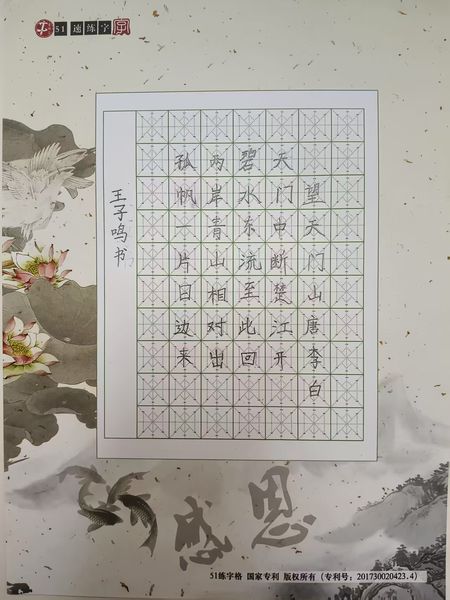 51速练字
望天门山唐李白
天门中断楚江开
碧水东流至此回
两岸青山相对出
孤帆一片日边来
王子鸣书
感恩
51练字格 国家专利 版权所有（专利号：201730020423.4）